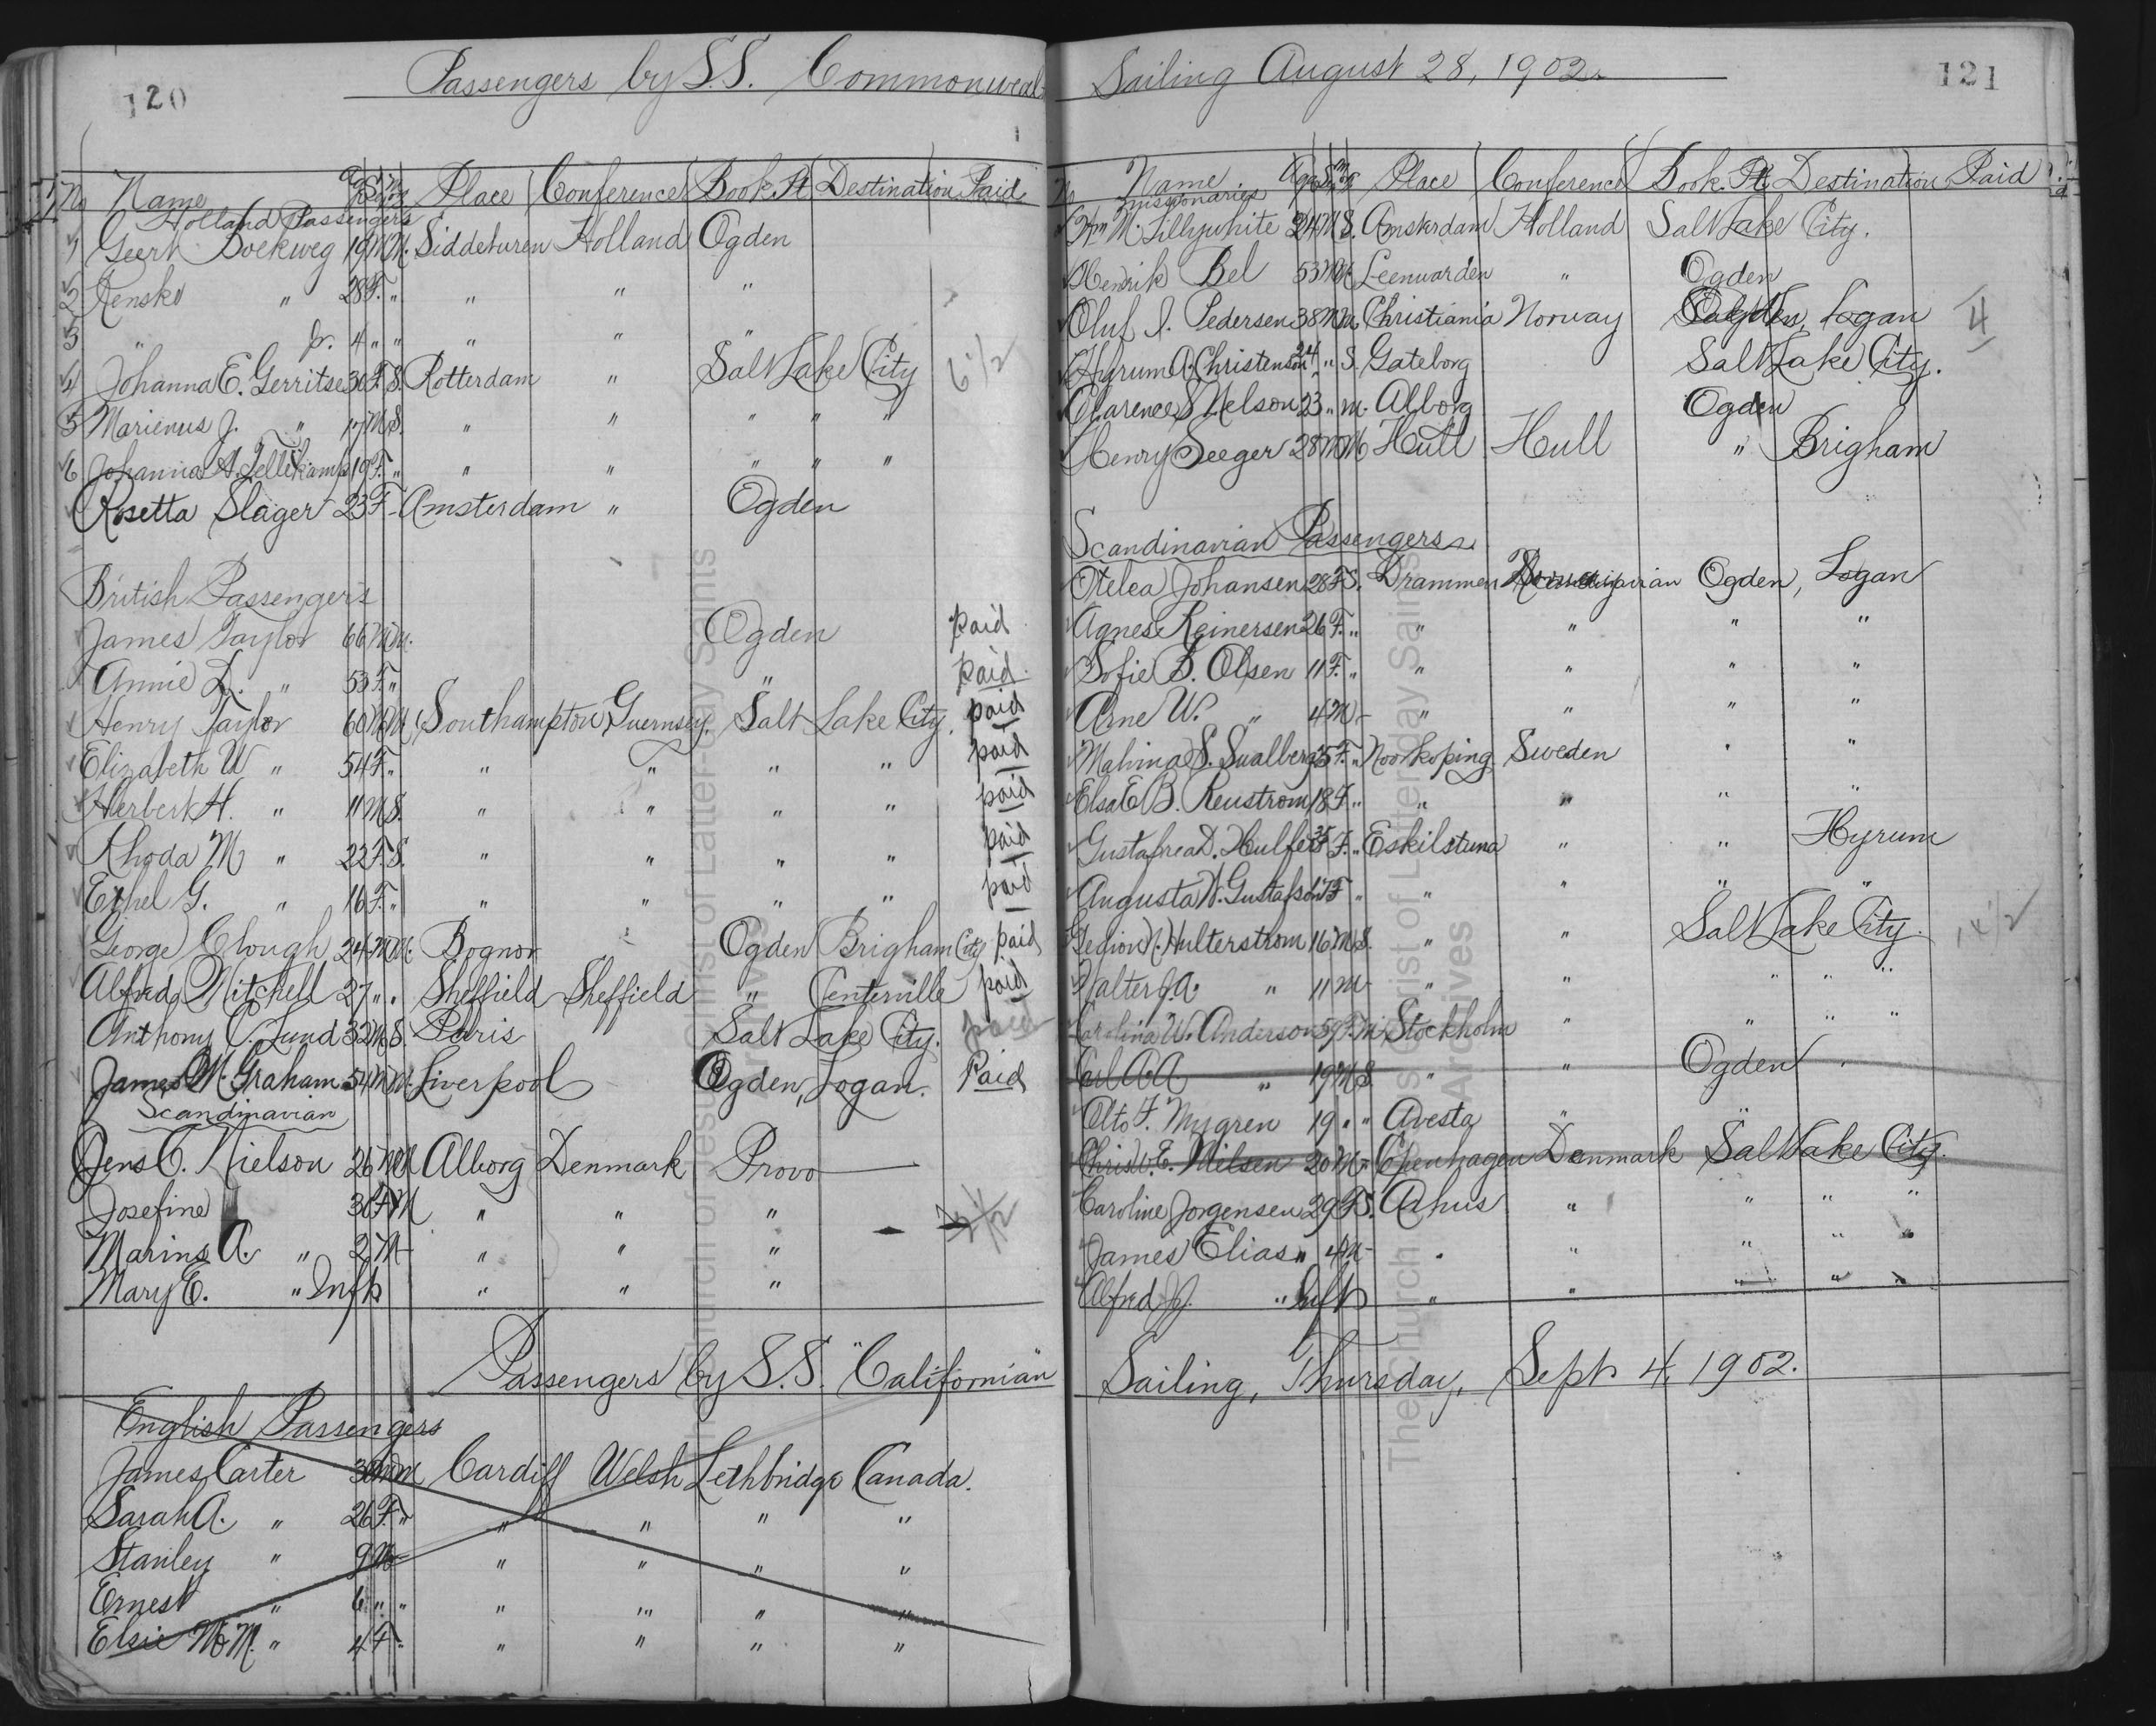 120
Passengers by S.S. Commonweal
No Name Age Sex Place Conference Book. Pt Destination Paid
Holland Passengers
1 Geert Doekweg 19 M M. Siddeburen Holland Ogden
2 Renske " 28 F. " " " "
3 " Jr. 4 " " " " "
4 Johanna E. Gerritse 30 F. S. Rotterdam " Salt Lake City 6 1/2
5 Marienus J. " 17 M S. " " " " "
6 Johanna A. Tellekamp 19 F. " " " " " "
Rosetta Slager 23 F - Amsterdam " Ogden
British Passengers
James Taylor 66 M M. Ogden paid
Annie L. " 53 F. " " paid.
Henry Taylor 60 M M Southampton Guernsey. Salt Lake City. paid
Elizabeth W " 54 F. " " " " " paid
Herbert H. " 11 M S. " " " " paid
Rhoda M " 22 F. S. " " " " paid
Ethel G. " 16 F. " " " " " paid
George Clough 24 M M. Bognor " Ogden Brigham City paid
Alfred Mitchell 27 " " Sheffield Sheffield " Centerville paid
Anthony C. Lund 32 M S. Paris Salt Lake City. paid
James M. Graham 54 M M. Liverpool Ogden, Logan. Paid
Scandinavian
Jens C. Nielson 26 M M Alborg Denmark Provo
Josefine 30 F M " " "
Marins A. " 2 M - " " "
Mary E. " Inft " " "
Passengers by S.S. "Californian"
English Passengers
James Carter 30 M M Cardiff Welsh Lethbridge Canada.
Sarah A. " 26 F. " " " " "
Stanley " 9 M - " " " "
Ernest " 6 " " " " " "
Elsie M. M. " 4 F. " " " "
Sailing August 28, 1902.
121
No Name Age Sex Place Conference Book. Pt. Destination Paid
Missionaries
Wm M. Lillywhite 24 M S. Amsterdam Holland Salt Lake City.
Henrik Bel 53 M M Leenwarden " Ogden
Oluf J. Pedersen 38 M M. Christiania Norway Logan 4
Hyrum A. Christenson 24 " S. Gateborg Salt Lake City.
Clarence S Nelson 23 " M. Alborg Ogden
Henry Seeger 28 M M Hull Hull " Brigham
Scandinavian Passengers
Otelea Johansen 28 F S. Drammen Ogden, Logan
Agnes Reinersen 26 F. " " " " "
Sofie B. Olsen 11 F. " " " " "
Arne W. " 4 M - " " " "
Malvina S. Svalberg 25 F. " Noorkoping Sweden " "
Elsa E B. Reustrom 18 F " " " " "
Gustafrea D. Hulfert 35 F. " Eskilstuna " " Hyrum
Augusta W. Gustafson 17 F " " " " "
Gedion N. Hulterstrom 16 M S. " " Salt Lake City. 14 1/2
Walter G. A. " 11 M - " " " " "
Carolina W. Anderson 59 F. M Stockholm " " " "
Carl A A " 19 M S " " Ogden "
Otto F. Nygren 19 " " Avesta " "
Christ. E. Nilsen 20 M - Copenhagen Denmark Salt Lake City.
Caroline Jorgensen 29 F S. Arhus " " " "
James Elias " 4 M - " " " " "
Alfred J. " Inft " " " " "
Sailing, Thursday, Sept 4, 1902.
The Church of Jesus Christ of Latter-day Saints
Archives
The Church of Jesus Christ of Latter-day Saints
Archives